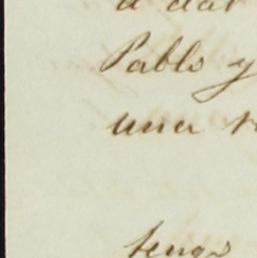 a dar
Pablo y
una
tengo